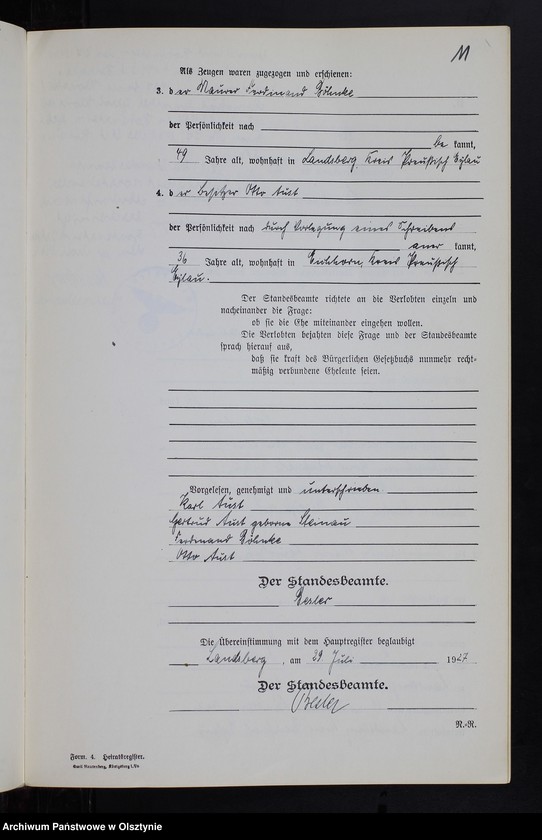 11
Als Zeugen waren zugezogen und erschienen:
3. der Maurer Ferdinand Böhnke
der Persönlichkeit nach
be kannt,
49 Jahre alt, wohnhaft in Landsberg, Kreis Preußisch Eylau
4. der Besitzer Otto Aust
der Persönlichkeit nach durch Vorlegung eines Schreibens
aner kannt,
36 Jahre alt, wohnhaft in Eichhorn, Kreis Preußisch
Eylau.
Der Standesbeamte richtete an die Verlobten einzeln und
nacheinander die Frage:
ob sie die Ehe miteinander eingehen wollen.
Die Verlobten bejahten diese Frage und der Standesbeamte
sprach hierauf aus,
daß sie kraft des Bürgerlichen Gesetzbuchs nunmehr recht-
mäßig verbundene Eheleute seien.
Vorgelesen, genehmigt und unterschrieben
Karl Aust
Gertrud Aust geborene Steinau
Ferdinand Böhnke
Otto Aust
Der Standesbeamte.
Die Übereinstimmung mit dem Hauptregister beglaubigt
Landsberg, am 29. Juli 1927
Der Standesbeamte.
R.-R.
Form. 4. Heiratsregister.
Archiwum Państwowe w Olsztynie